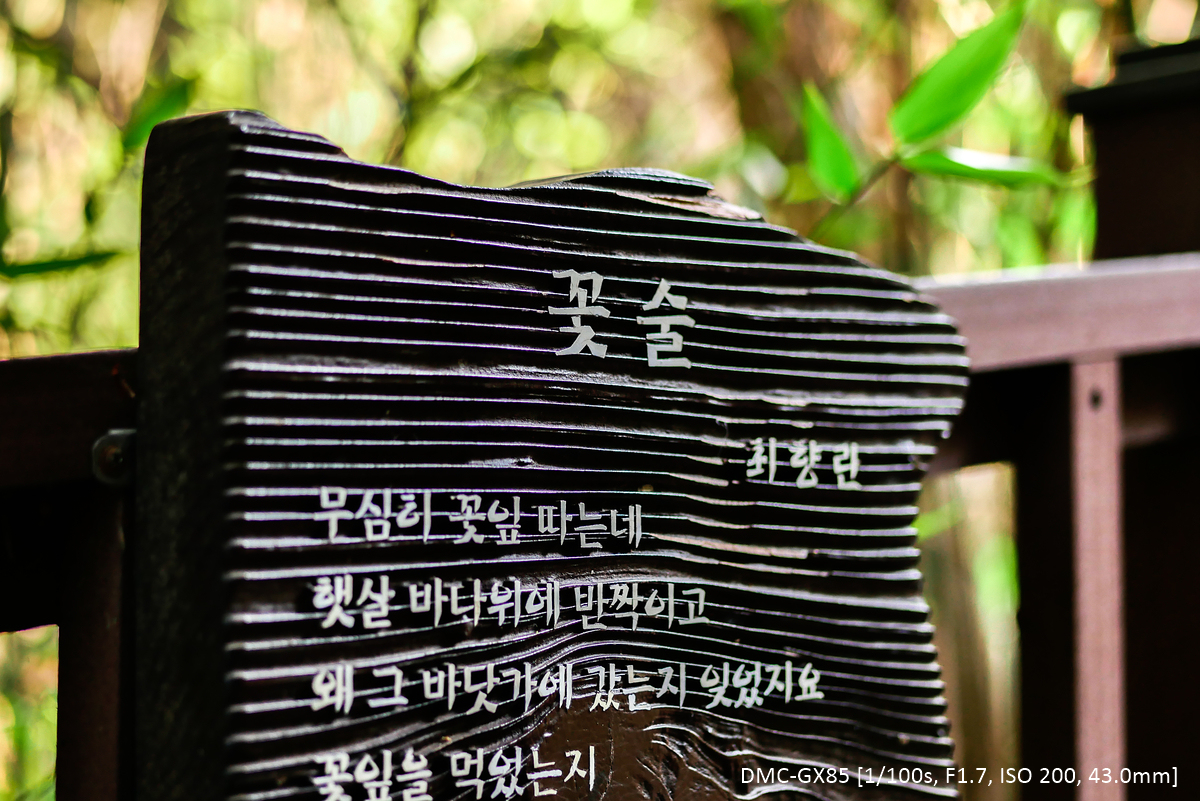 꽃 술
최향란
무심히 꽃잎 따는데
햇살 바다위에 반짝이고
왜 그 바닷가에 갔는지 잊었지요
꽃잎을 먹었는지
DMC-GX85 [1/100s, F1.7, ISO 200, 43.0mm]